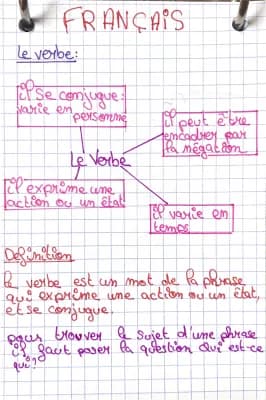 FRANÇAIS
Le verbe:
il se conjugue:
varie en
personne
il peut être
encadrer par
la négation
Le Verbe
il exprime une
action ou un état
il varie en
temps
Définition
Le verbe est un mot de la phrase
qui exprime une action ou un état,
et se conjugue.
pour trouver le sujet d'une phrase
il faut poser la question qui est-ce
qui?